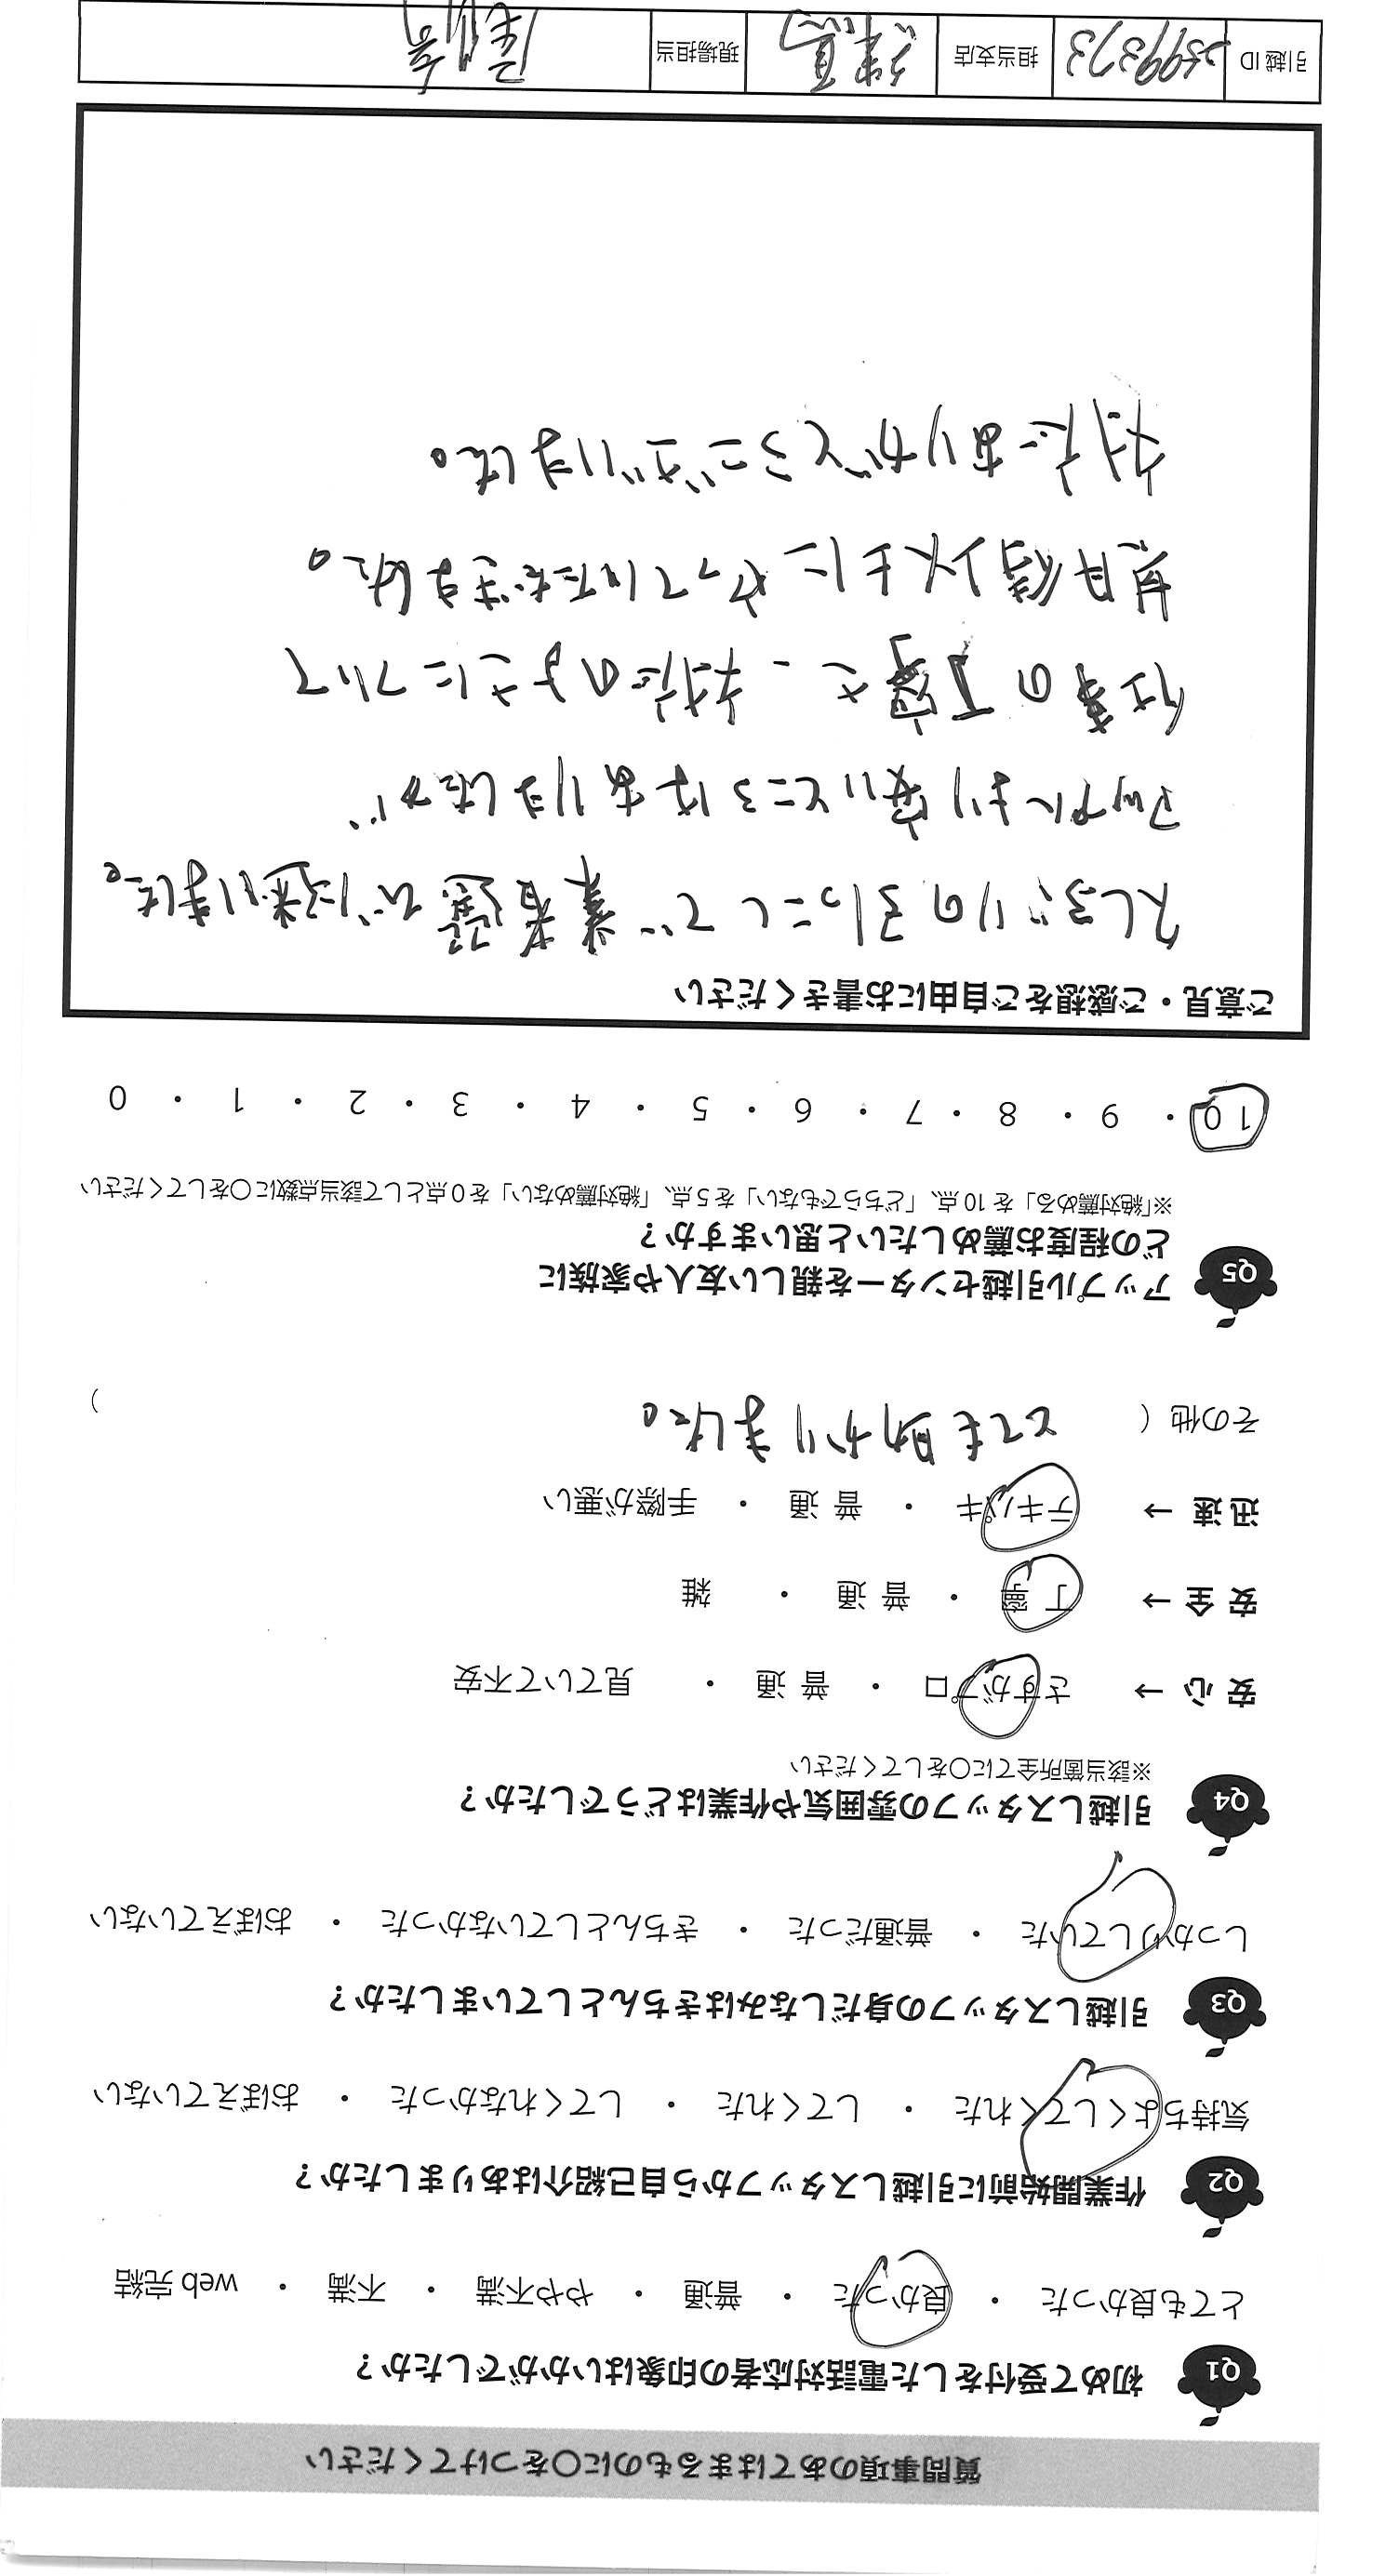 質問事項のあてはまるものに○をつけてください
Q1 初めて受付をした電話対応者の印象はいかがでしたか？
とても良かった ・ 良かった ・ 普通 ・ やや不満 ・ 不満 ・ web 完結
Q2 作業開始前に引越しスタッフから自己紹介はありましたか？
気持ちよくしてくれた ・ してくれた ・ してくれなかった ・ おぼえていない
Q3 引越しスタッフの身だしなみはきちんとしていましたか？
しっかりしていた ・ 普通だった ・ きちんとしていなかった ・ おぼえていない
Q4 引越しスタッフの雰囲気や作業はどうでしたか？
※該当箇所全てに○をしてください
安 心 → さすがプロ ・ 普 通 ・ 見ていて不安
安 全 → 丁 寧 ・ 普 通 ・ 雑
迅 速 → テキパキ ・ 普 通 ・ 手際が悪い
その他（ とても助かりました。 ）
Q5 アップル引越センターを親しい友人や家族に
どの程度お薦めしたいと思いますか？
※「絶対薦める」を 10 点、「どちらでもない」を 5 点、「絶対薦めない」を 0 点として該当点数に○をしてください
10 ・ 9 ・ 8 ・ 7 ・ 6 ・ 5 ・ 4 ・ 3 ・ 2 ・ 1 ・ 0
ご意見・ご感想をご自由にお書きください
久しぶりの引っこしで業者選びに迷いました。
アップルより安いところはありましたが、
仕事の丁寧さ、対応のよさについて
期待以上にやっていただきました。
対応ありがとうございました。
引越 ID 2599373 担当支店 練馬 現場担当